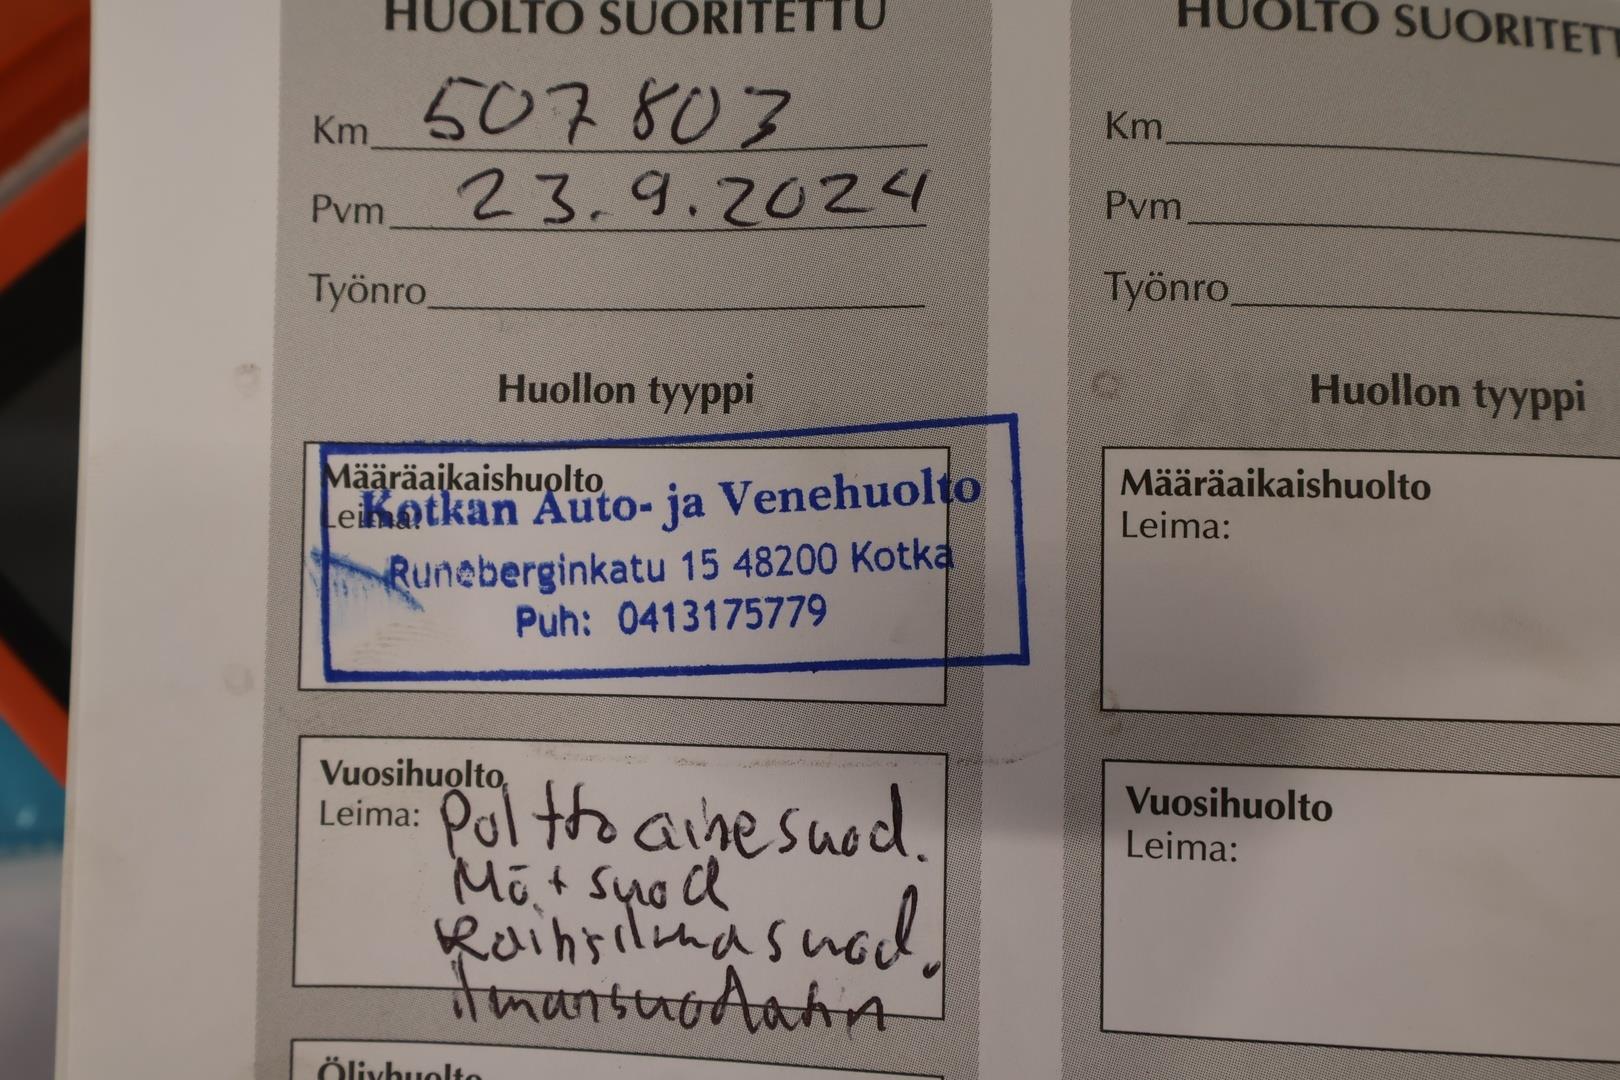 HUOLTO SUORITETTU
Km 507 803
Pvm 23.9.2024
Työnro
Huollon tyyppi
Määräaikaishuolto
Leima:
Kotkan Auto- ja Venehuolto
Runeberginkatu 15 48200 Kotka
Puh: 0413175779
Vuosihuolto
Leima: Polttoainesuod.
Mö + suod
Raitisilmasuod.
ilmansuodatin
Öljyhuolto
HUOLTO SUORITETT
Km
Pvm
Työnro
Huollon tyyppi
Määräaikaishuolto
Leima:
Vuosihuolto
Leima: